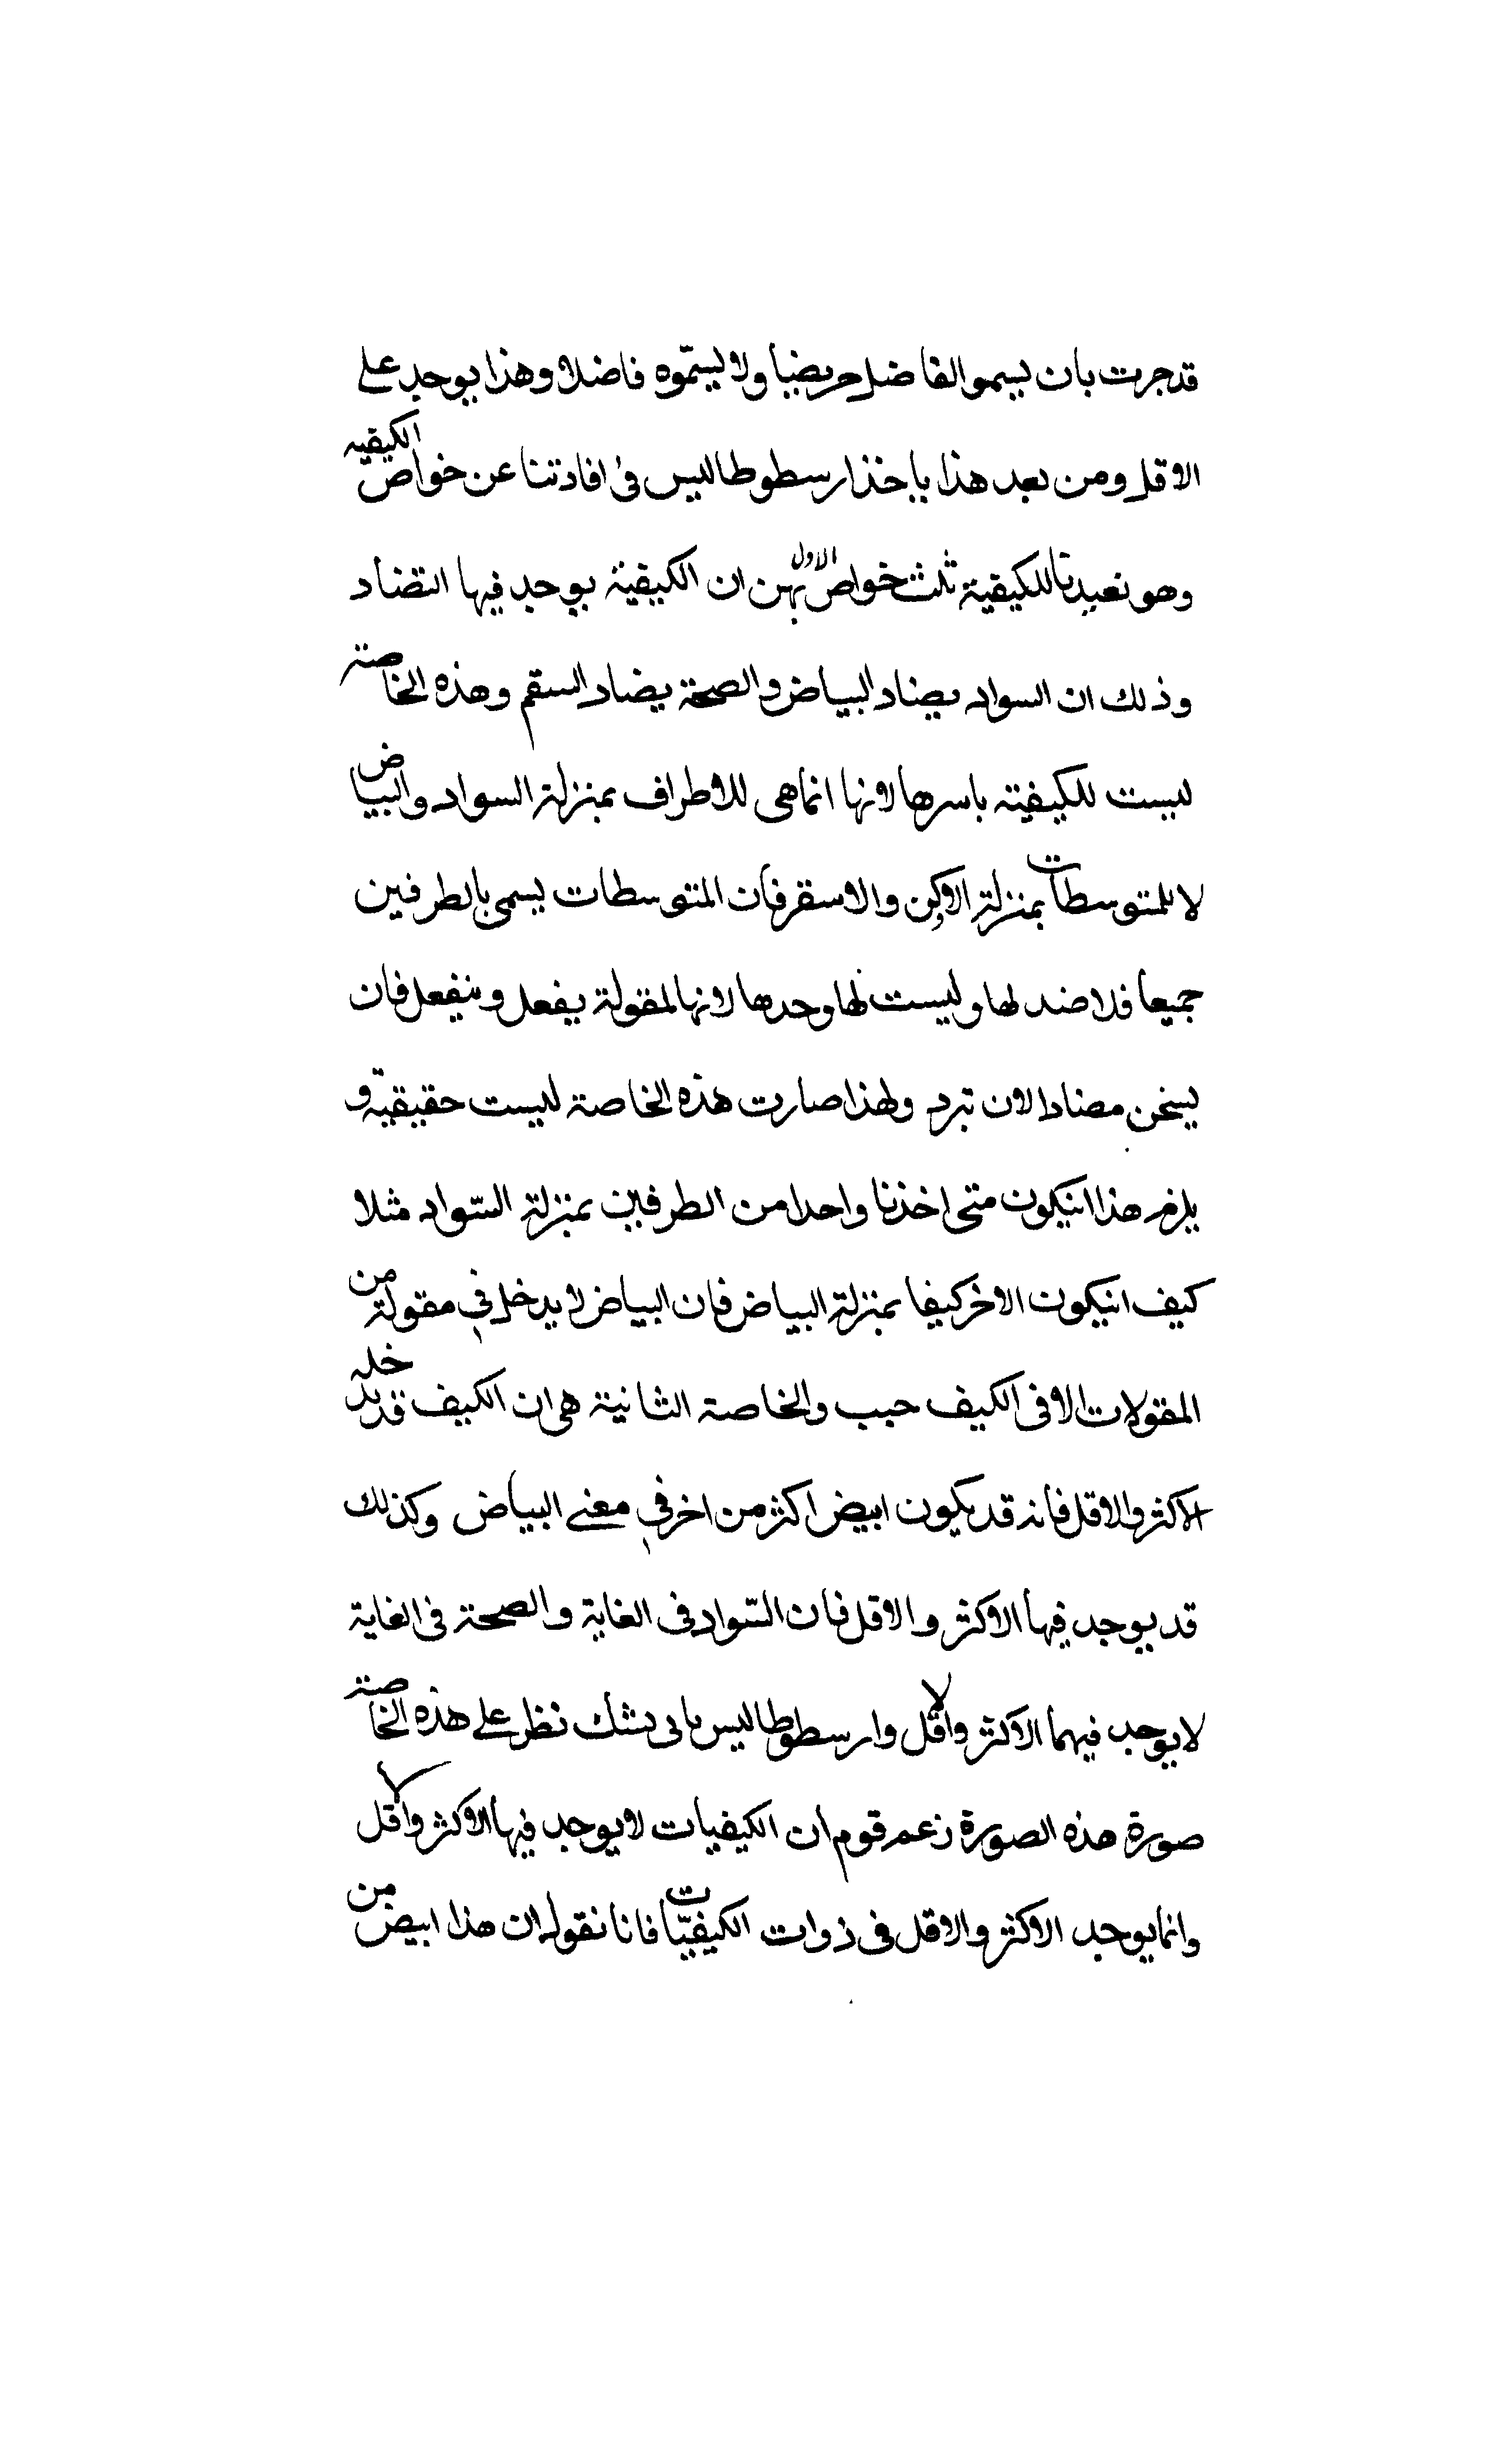 قد جرت بان يسموا الفاضل حريضيا ولا يسمّوه فاضلا وهذا يوجد على
الاقل ومن بعد هذا ياخذ ارسطوطاليس فى افادتنا عن خواص الكيفيه
وهو تعيدنا للكيفية ثلث خواص الاول بهن ان الكيفية يوجد فيها التضاد
وذلك ان السواد يضاد البياض والصحة يضاد السقم وهذه الخاصة
ليست للكيفية باسرها لانها انما هى للاطراف بمنزلة السواد والبياض
لا للمتوسطات بمنزلة الاوكن والاسقر فان المتوسطات يسمى بالطرفين
جميعا فلا ضد لها وليست لها وحدها لانها لمقولة يفعل وينفعل فان
يسخن مضادا لان تبرد ولهذا صارت هذه الخاصة ليست حقيقيّة و
يلزم هذا انيكون متى اخذنا واحدا من الطرفين بمنزلة السّواد مثلا
كيف انيكون الاخر كيفا بمنزلة البياض فان البياض لا يدخل في مقولة من
المقولات الا فى الكيف حبب والخاصة الثانية هى ان الكيف قد يدخله
الاكثر والاقل فانه قد يكون ابيض اكثر من اخر في معنى البياض وكذلك
قد يوجد فيها الاكثر والاقل فان السّواد فى الغاية والصحة فى الغاية
لا يوجد فيهما الاكثر والاقل وارسطوطاليس يشك نظر على هذه الخاصة
صورة هذه الصورة زعم قوم ان الكيفيات لا يوجد فيها الاكثر والاقل
وانما يوجد الاكثر والاقل فى ذوات الكيفيّات فانا نقول ان هذا ابيض من